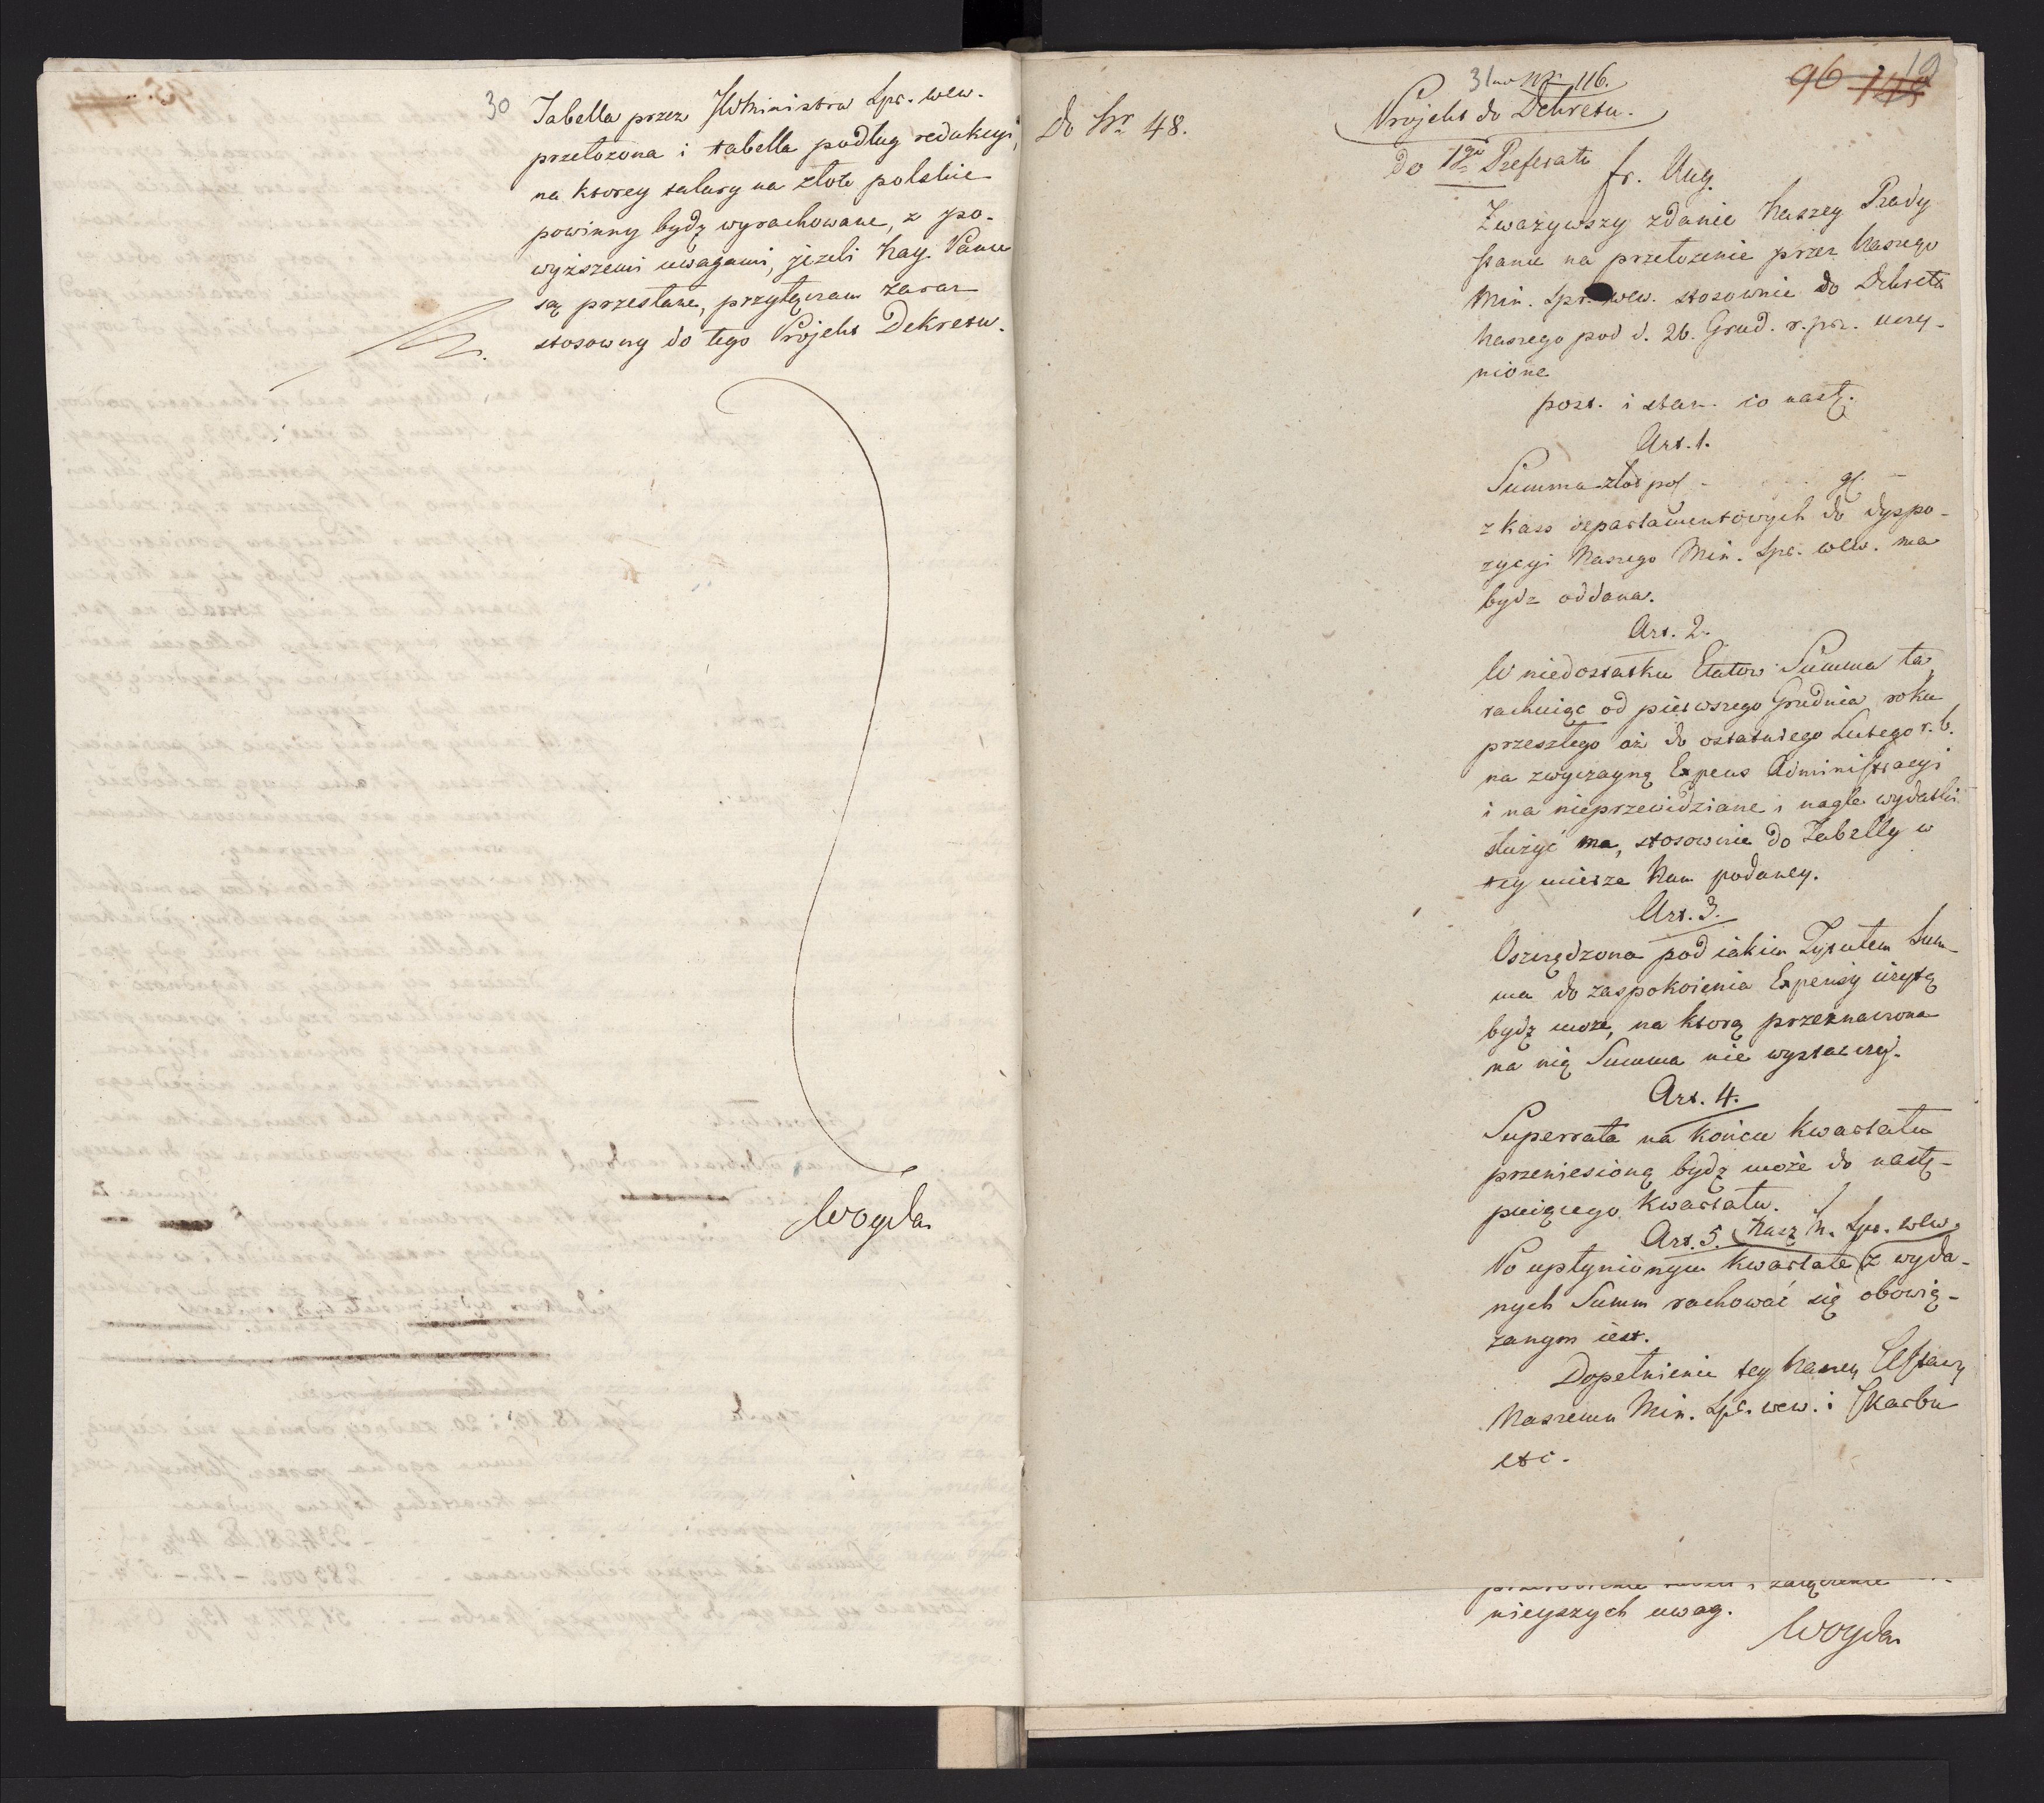 30
Tabella przez JWMinistra Spr. wew.
przełożona i tabella podług redukcyi,
na ktorey salary na złote polskie
powinny bydź wyrachowane, z po-
wyższemi uwagami, jeżeli Nay. Panu
są przesłane, przyłączam zaraz
stosowny do tego Projekt Dekretu.
Woyda
Do Nr 48.
31 Nr. 116.
96
Projekt do Dekretu.
do 1go Referatu
Fr. Aug.
Zważywszy zdanie Naszey Rady
Stanu na przełożenie przez Naszego
Min. Spr. wew. stosownie do Dekretu
Naszego pod d. 26. Grud. r. pr. uczy-
nione
post. i stan. co nastę.
Art. 1.
Summa złot pol - gr. -
z kass departamentowych do dyspo-
zycyi Naszego Min. Spr. wew. ma
bydz oddana.
Art. 2.
W niedostatku Etatów Summa ta,
rachuiąc od pierwszego Grudnia roku
przeszłego aż do ostatniego Lutego r. b.
na zwyczayną Expens Administracyi
i na nieprzewidziane i nagłe wydatki
służyć ma, stosownie do Tabelly w
tey mierze Nam podaney.
Art. 3.
Oszczędzona pod iakim Tytułem Sum-
ma do zaspokoienia Expensy użytą
bydź może, na ktorą przeznaczona
na nią Summa nie wystarczy.
Art. 4.
Superrata na końcu Kwartału
przeniesioną bydź może do nastę-
puiącego Kwartału.
Art. 5. Nasz M. Spr. wew.
Po upłynionym Kwartale z wyda-
nych Summ rachować się obowią-
zanym iest.
Dopełnienie tey Naszey Ustawy
Naszemu Min. Spr. wew. i Skarbu
etc.
nieyszych uwag.
Woyda